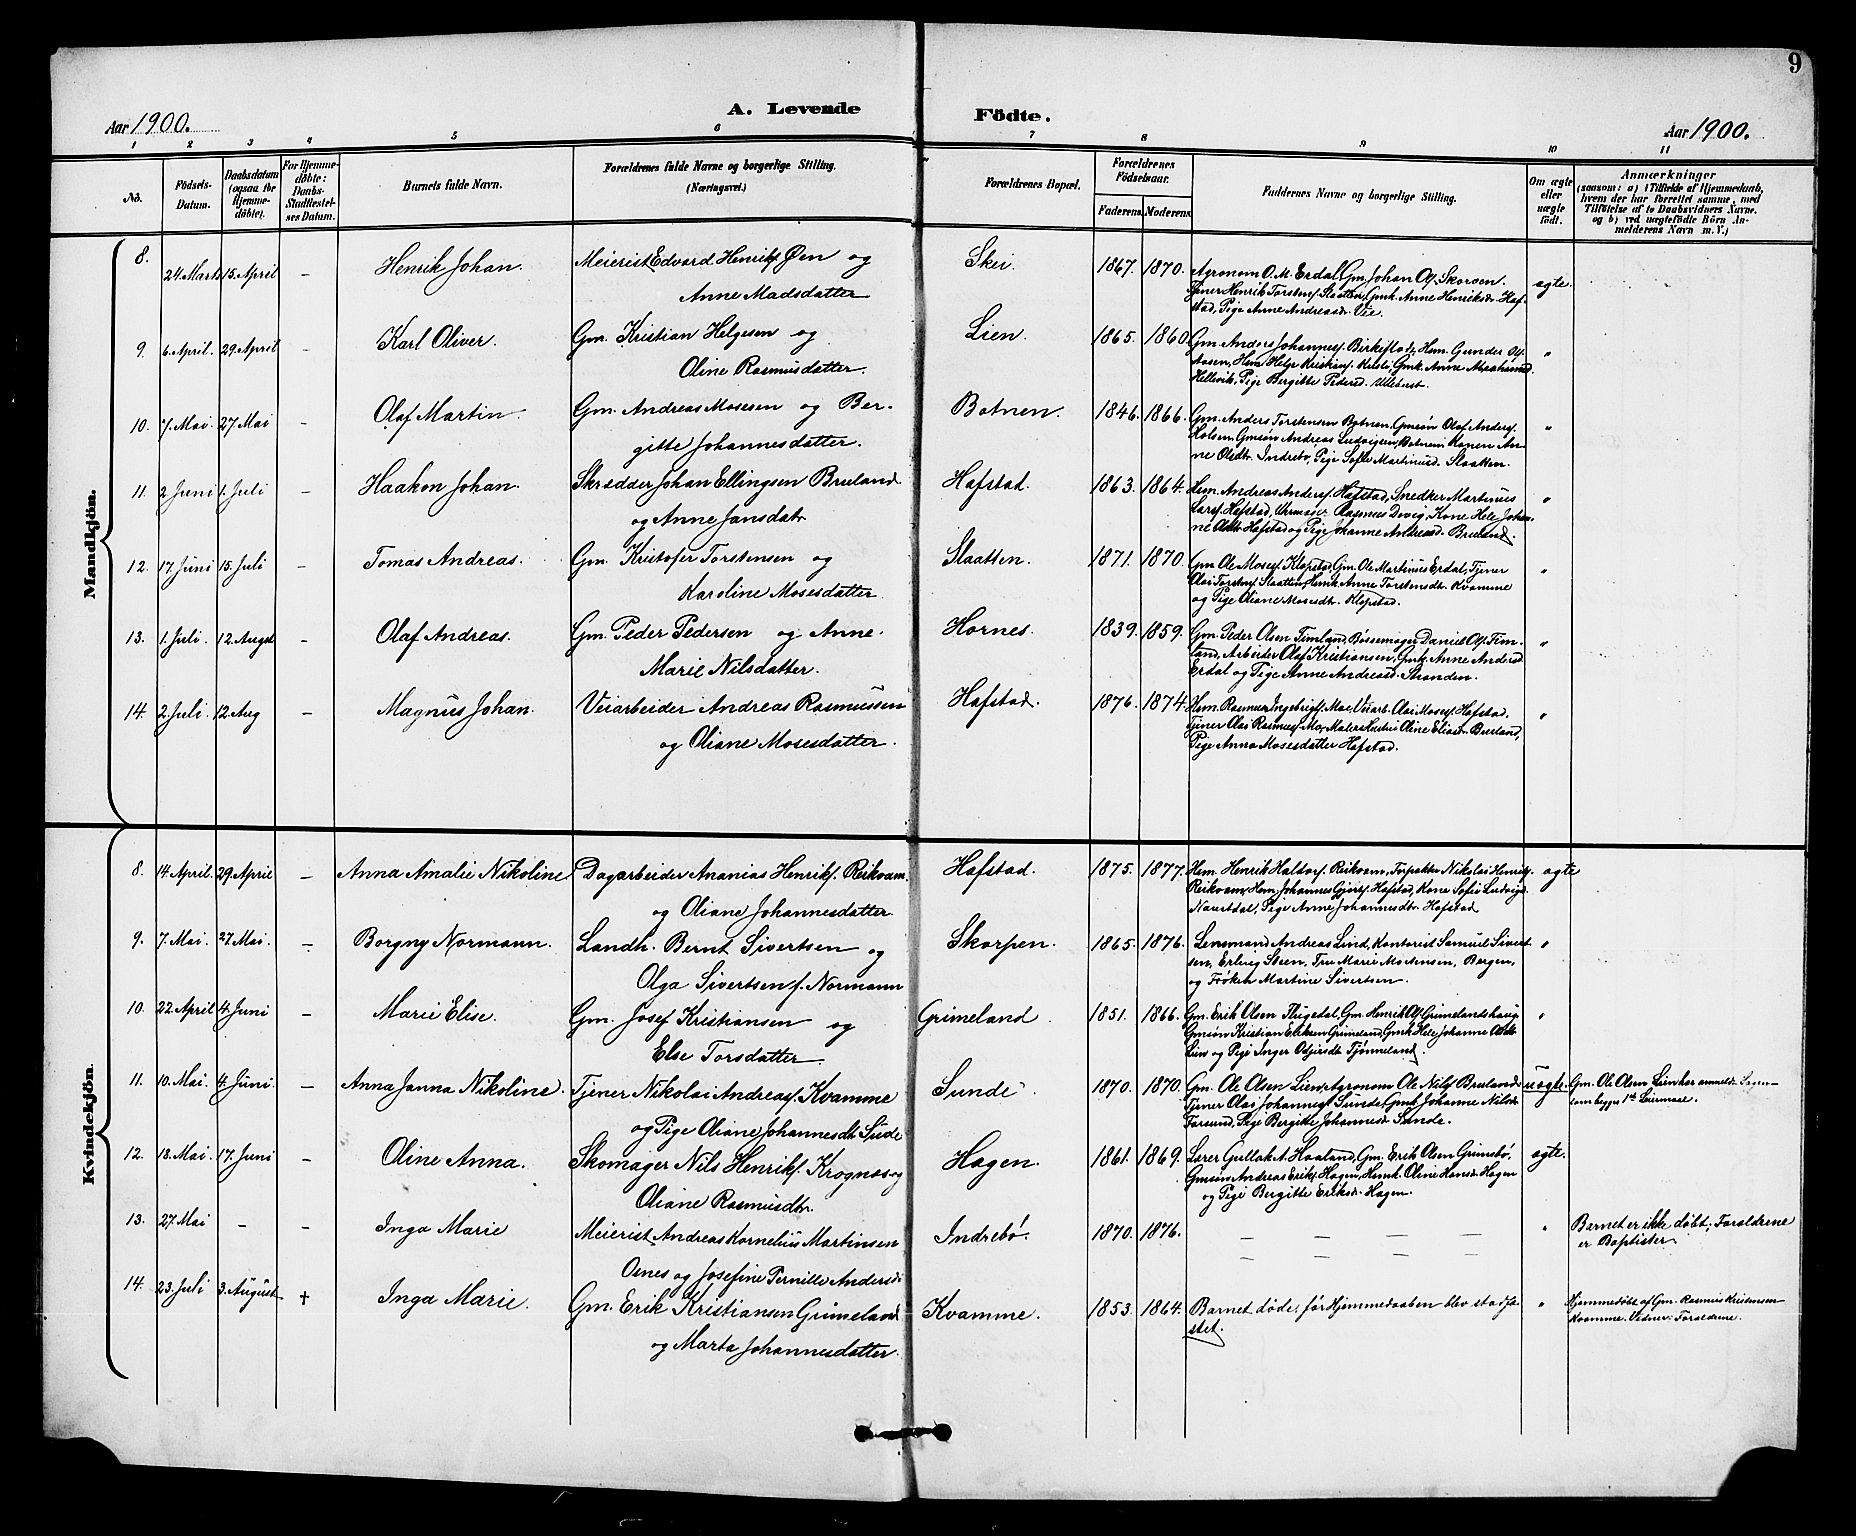 9
Aar 1900.
A. Levende
Födte.
Aar 1900.
1 2 3 4 5 6 7 8 9 10 11
No.
Födsels-
Datum.
Daabsdatum
(ogsaa for
Hjemme-
döbte).
For Hjemme-
döbte:
Daabs-
Stadfæstel-
ses Datum.
Barnets fulde Navn.
Forældrenes fulde Navne og borgerlige Stilling.
(Næringsvei.)
Forældrenes Bopæl.
Forældrenes
Födselsaar.
Faderens. Moderens.
Faddernes Navne og borgerlige Stilling.
Om ægte
eller
uægte
födt.
Anmærkninger
(saasom: a) i Tilfælde af Hjemmedaab,
hvem der har forrettet samme, med
Tilföielse af to Daabsvidners Navne.
og b) ved uægtefödte Börn An-
melderens Navn m. V.)
Mandkjön.
8. 24. Marts 15. April – Henrik Johan. Meierist Edvard Henriks. Øen og
Anne Madsdatter
Skei. 1867. 1870. Agronom O. M. Erdal, Gm. Johan Ols. Skorven.
Tjener Henrik Torstens. Slaatten, Gmk. Anne Henriksdr. Haf-
stad, Pige Anne Andreasdr. Vie.
ægte.
9. 6. April. 29. April – Karl Oliver. Gm. Kristian Helgesen og
Oline Rasmusdatter.
Lien. 1865. 1860. Gm. Anders Johannes. Birkeflot, Hem. Gunder Ol.
Hellevik, Pige Bergitte Pedersd.
"
10. 7. Mai. 27. Mai – Olaf Martin. Gm. Andreas Mosesen og Ber-
gitte Johannesdatter.
Botnen. 1846. 1866. Gm. Anders Torstensen Botnen, Gmsøn Olaf Anders.
Holsen, Gmsøn Andreas Ludvigsen Botnen, Konen An-
ne Olsdtr. Indrebø, Pige Sofie Martinusd. Slaatten.
"
11. 2. Juni 1. Juli – Haakon Johan. Skrædder Johan Ellingsen Bruland
og Anne Jansdatr.
Hafstad. 1863. 1864. Hsm. Andreas Anders. Hafstad, Snedker Martinus
Lars. Hafstad, Urmager Rasmus Devig, Kone Hele Johan-
ne Hafstad og Pige Johanne Andreasd. Bruland.
"
12. 17. Juni 15. Juli – Tomas Andreas. Gm. Kristofer Torstensen og
Karoline Mosesdatter.
Slaatten. 1871. 1870. Gm. Ole Moses. Klopstad, Gm. Ole Martinus Erdal, Tjener
Olai Torstens. Slaatten, Hemk. Anne Torstensdtr. Kvamme
og Pige Oliane Mosesdtr. Klopstad.
"
13. 1. Juli. 12. Augst – Olaf Andreas. Gm. Peder Pedersen og Anne
Marie Nilsdatter.
Hornes. 1839. 1859. Gm. Peder Olsen Timland, Bøssemager Daniel Ols. Tim-
land, Arbeider Olaf Kristiansen, Gmk. Anne Andersd.
Erdal og Pige Anne Andreasd. Stranden.
"
14. 2. Juli. 12. Aug – Magnus Johan. Veiarbeider Andreas Rasmussen
og Oliane Mosesdatter.
Hafstad. 1876. 1874. Hsm. Rasmus Ingebrigts. Mo, Veiarb. Olai Moses. Hafstad.
Tjener Olai Rasmus. Mo, Malers Hustru Oline Eliasdr. Bruland,
Pige Anna Mosesdatter Hafstad.
"
Kvindekjön.
8. 14. April. 29. April – Anna Amalie Nikoline Dagarbeider Ananias Henriks. Reikvam
og Oliane Johannesdatter
Hafstad. 1875. 1877. Hem. Henrik Haldors. Reikvam, Forpakter Nikolai Henriks.
Reikvam, Hem. Johannes Gjers. Hafstad, Kone Sofie Ludvigs.
Naustdal, Pige Anne Johannesdtr. Hafstad
ægte
9. 7. Mai. 27. Mai. – Borgny Normann. Landh. Bernt Sivertsen og
Olga Sivertsen f. Normann
Skorpen. 1865. 1876. Lensmand Andreas Lind, Kontorist Samuel Sivert-
sen, Erling Steen, Fru Marie Mortensen, Bergen,
og Frøken Martine Sivertsen.
"
10. 22. April 4. Juni – Marie Elise. Gm. Josef Kristiansen og
Else Torsdatter.
Grimeland. 1851. 1866. Gm. Erik Olsen Flugedal, Gm. Henrik Ols. Grimelandshaug
Gmsøn Kristian Eriksen Grimeland, Gmk. Hele Johanne
Lien og Pige Inger Tjønneland.
"
11. 10. Mai. 4. Juni. – Anna Janna Nikoline. Tjener Nikolai Andreas. Kvamme
og Pige Oliane Johannesdtr. Sunde
Sunde 1870. 1870. Gm. Ole Olsen Lien, Agronom Ole Nils. Bruland,
Tjener Olai Johannes. Sunde, Gmk. Johanne Nilsdr.
Farsund, Pige Bergitte Johannesdr. Sunde.
uægte
Gm. Ole Olsen Lien har anmeldt Sagen
som begges 1ste Leiermaal.
12. 18. Mai. 17. Juni – Oline Anna. Skomager Nils Henriks. Krognæs og
Oliane Rasmusdtr.
Hagen. 1861. 1869. Lærer Gullak A. Haaland, Gm. Erik Olsen Grimsbø,
Gmsøn Andreas Eriks. Hagen, Hemk. Oline Hansdr. Hagen
og Pige Bergitte Eriksdr. Hagen.
ægte.
13. 27. Mai – – Inga Marie Meierist Andreas Kornelius Martinsen
Osnes og Josefine Pernille Andersdr.
Indrebø. 1870. 1876. – – – –
"
Barnet er ikke døbt; Forældrene
er Baptister.
14. 23. Juli 3. August † Inga Marie. Gm. Erik Kristiansen Grimeland
og Marta Johannesdatter.
Kvamme. 1853. 1864. Barnet døde, før Hjemmedaaben blev stadfæ-
stet.
"
Hjemmedøbt af Gm. Rasmus Kristensen
Kvamme. Vidner: Forældrene.